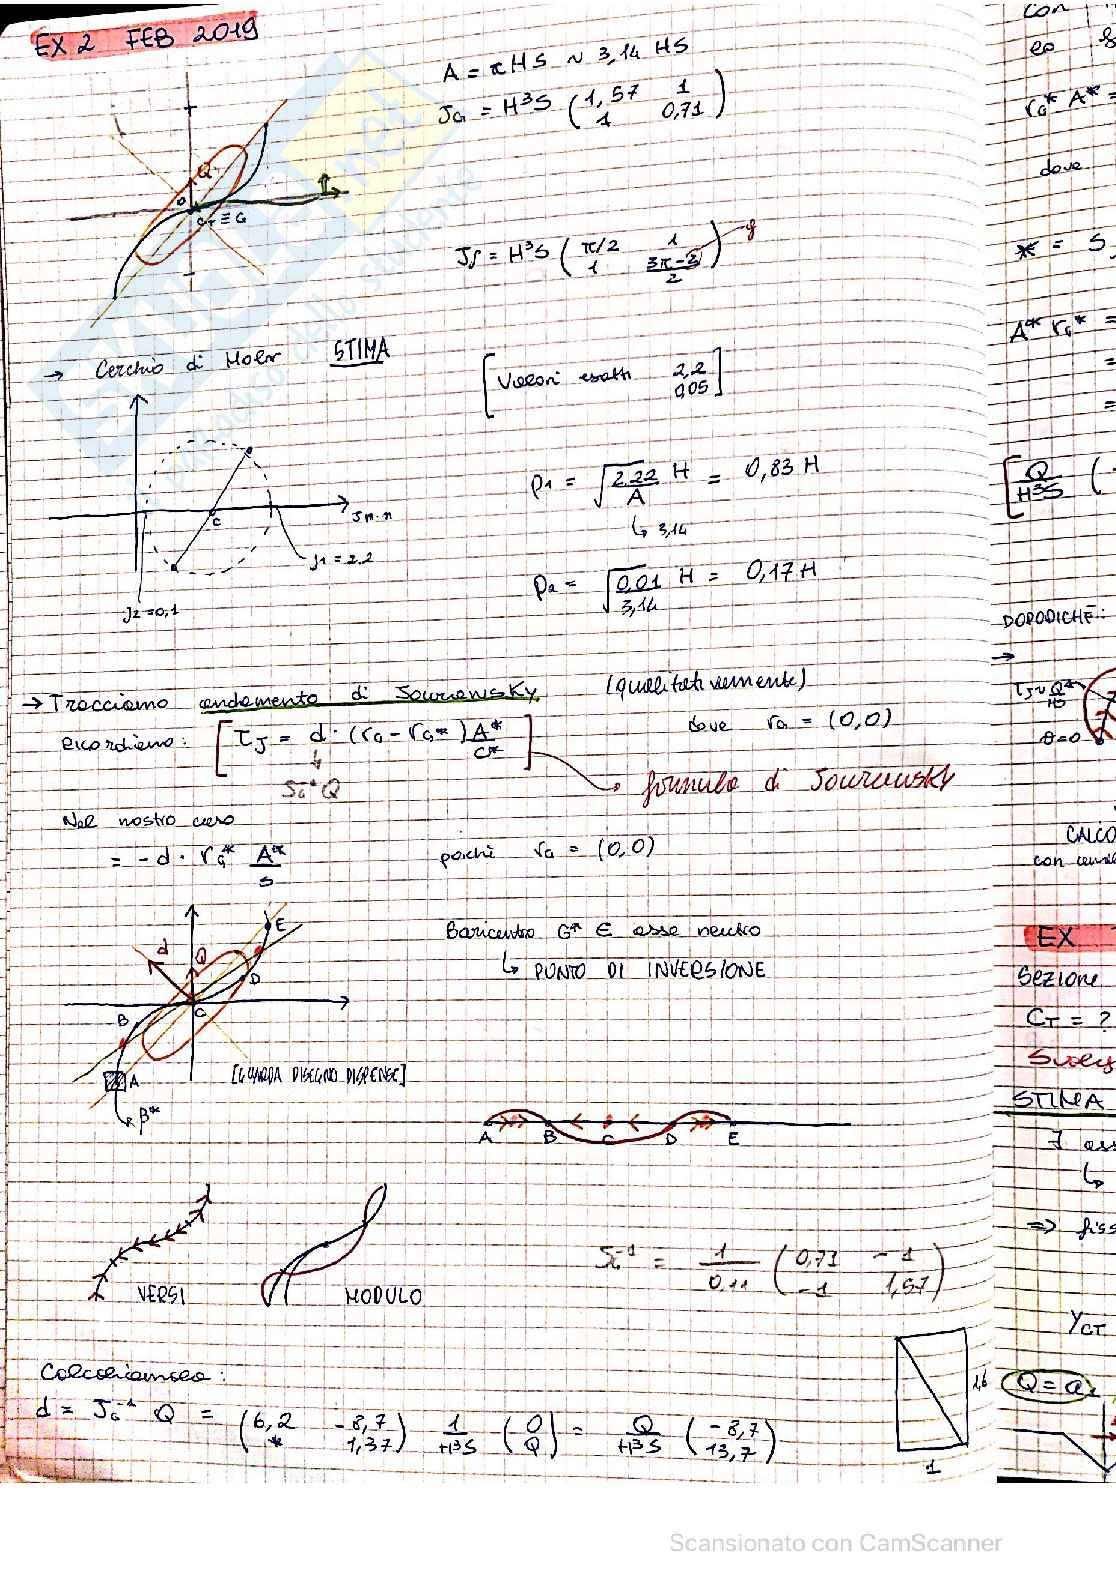 EX 2 FEB 2019
A = π HS ~ 3,14 HS
J_G = H³S ( 1,57 1
1 0,71 )
Q
O
C_T ≡ G
J_G = H³S ( π/2 1
1 (3π-2)/2 )
→ Cerchio di Mohr STIMA
[ Valori esatti 2,2
0,05 ]
ρ1 = √(2.22/A) H = 0,83 H
↳ 3,14
c
J n·n
J1 = 2.2
J2 = 0,1
ρ2 = √(0,01/3,14) H = 0,17 H
→ Tracciamo andamento di Jourawsky (qualitativamente)
Ricordiamo: [ τ_J = d · (r_G - r_G*) A*/C* ] dove r_G = (0,0)
J_G⁻¹ Q
→ formula di Jourawsky
Nel nostro caso
= - d · r_G* A*/S poiché r_G = (0,0)
Baricentro G* ∈ asse neutro
↳ PUNTO DI INVERSIONE
d
Q
E
D
C
B
A
β*
[GUARDA DISEGNO DISPENSE]
A B C D E
VERSI
MODULO
J_G⁻¹ = 1/0,11 ( 0,71 -1
-1 1,57 )
Calcoliamolo:
d = J_G⁻¹ Q = ( 6,2 -8,7
* 1,37 ) 1/H³S ( 0
Q ) = Q/H³S ( -8,7
13,7 )
1,6
1
con
eo
r_G* A* =
dove
* = S
A* r_G* =
=
=
[ Q/H³S (
DOPODICHÈ:
→
τ_J ~ Q*/HS
θ=0
CALCO
con
EX
Sezione
C_T = ?
Svolg
STIMA
∃ ass
↳
⇒ fiss
Y_CT
Q = a₂
Scansionato con CamScanner